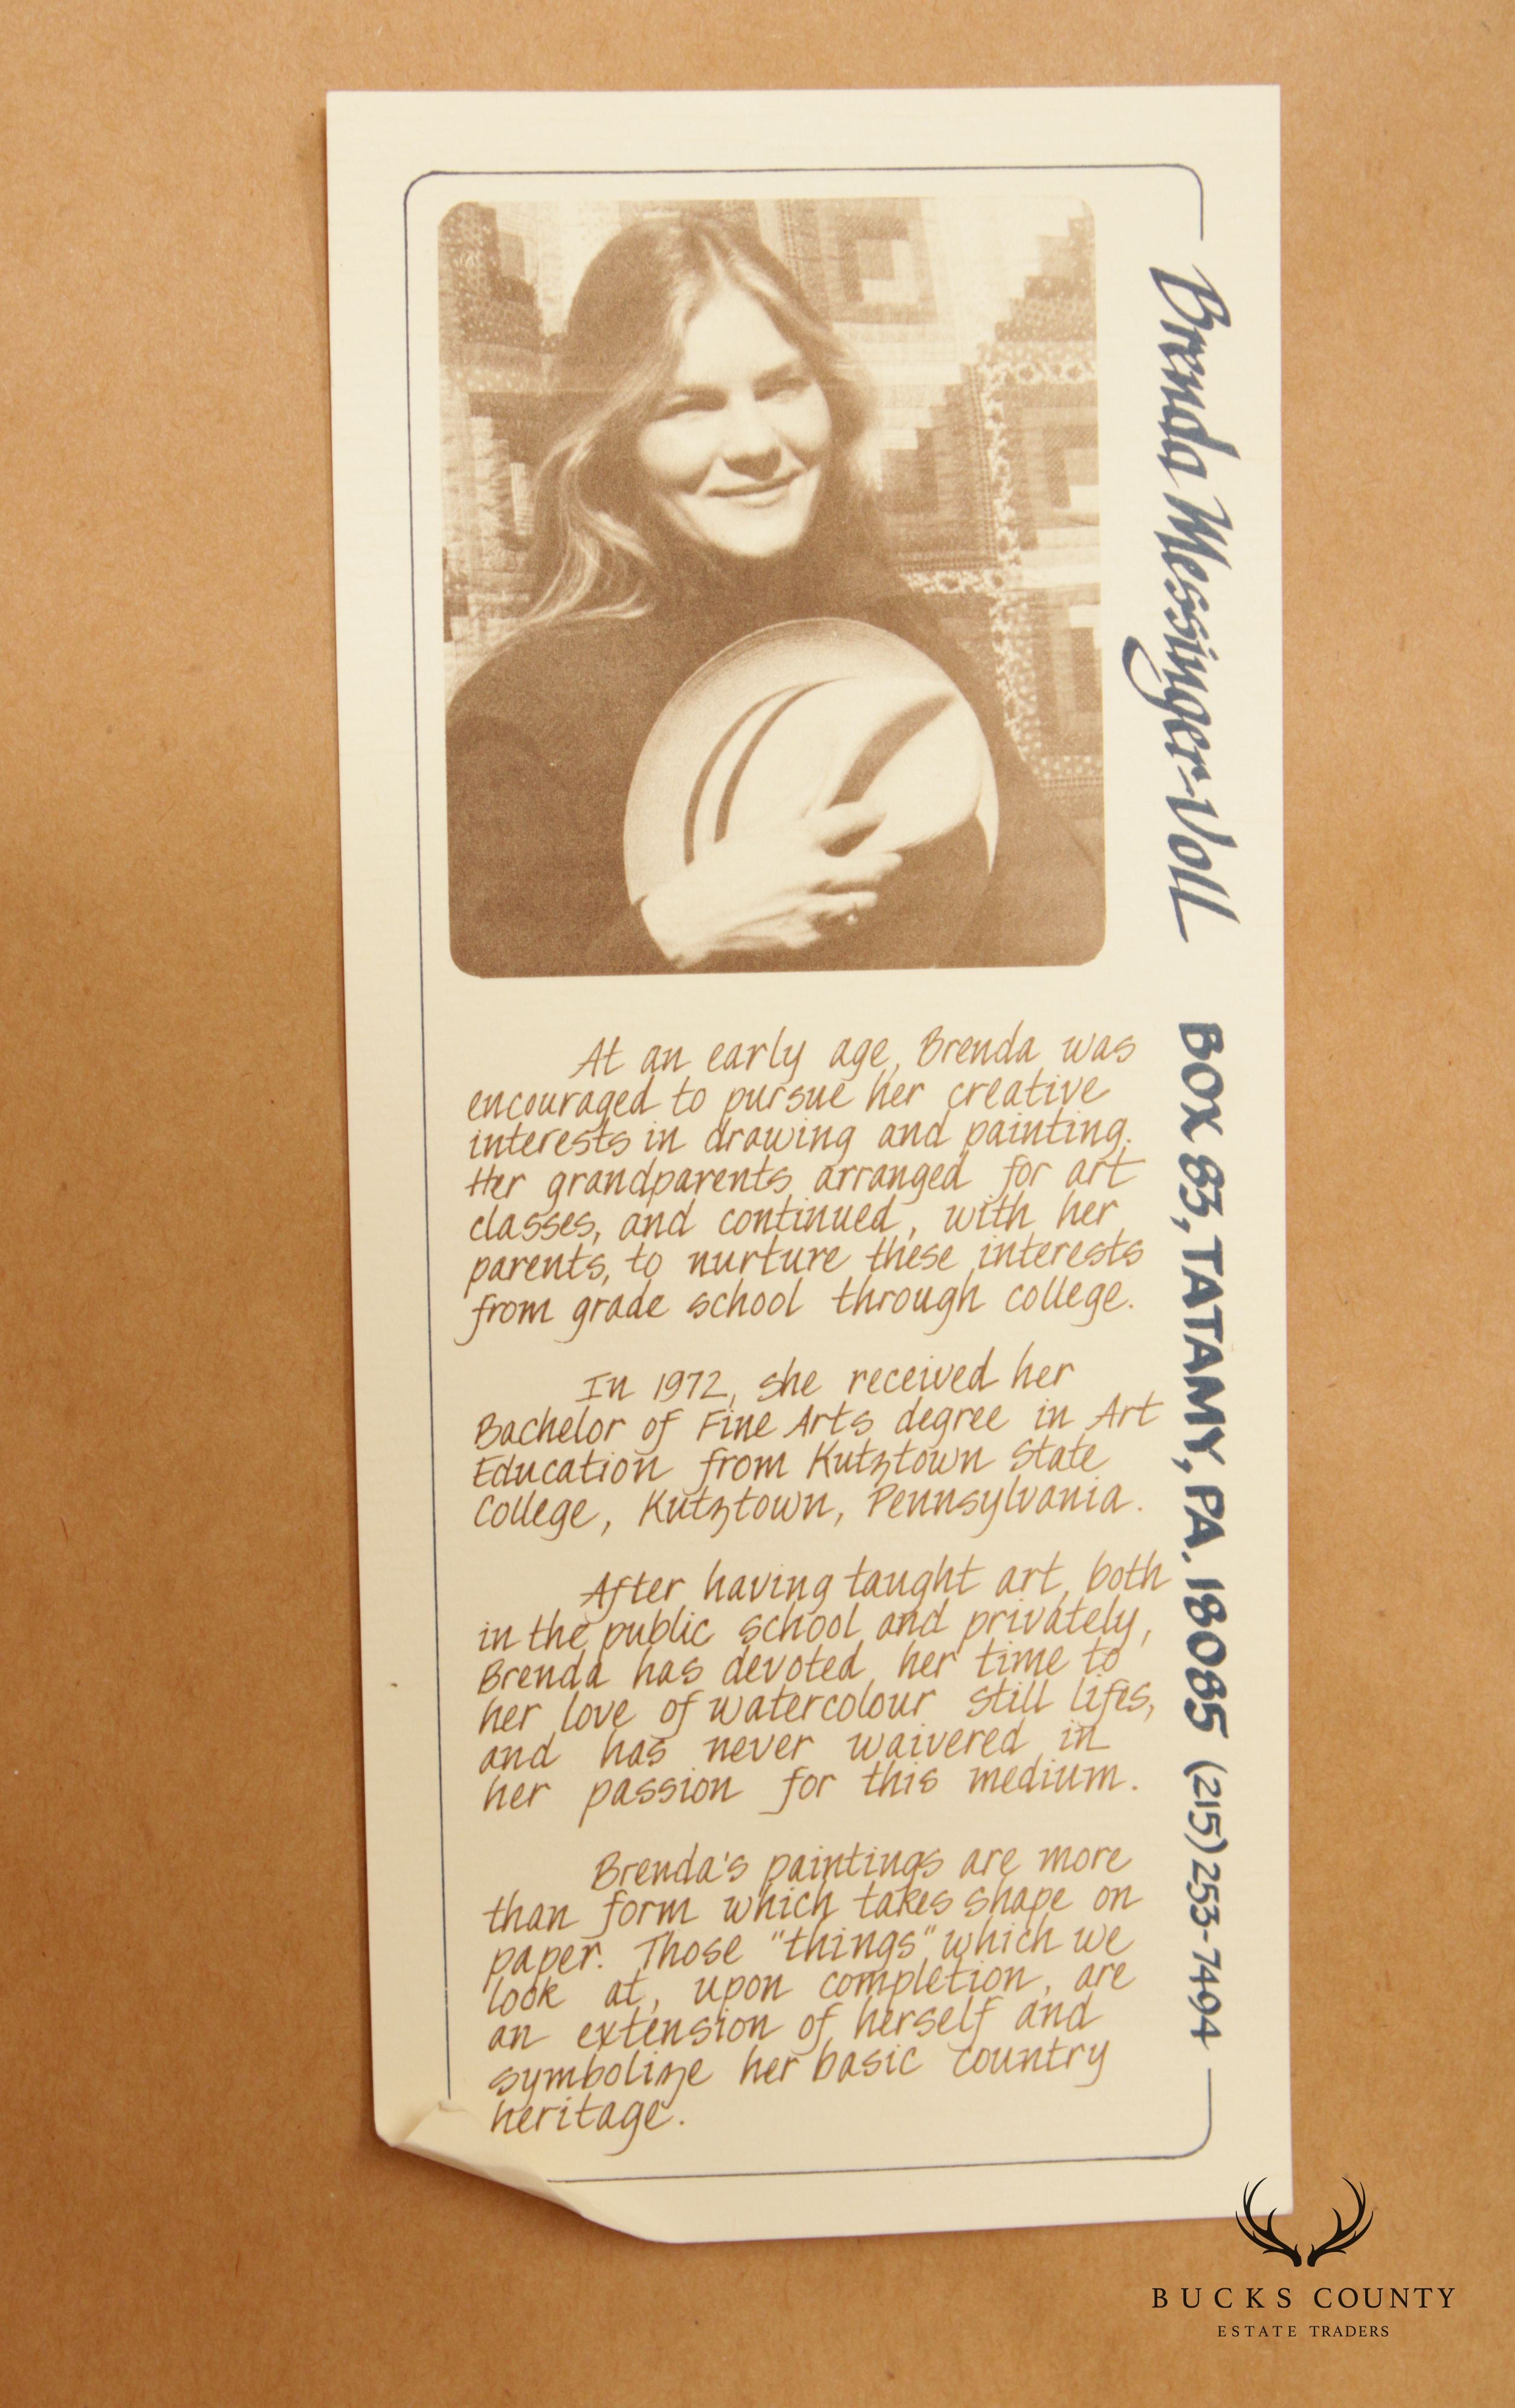 Brenda Messinger-Voll
BOX 83, TATAMY, PA. 18085 (215) 253-7494
At an early age, Brenda was
encouraged to pursue her creative
interests in drawing and painting.
Her grandparents arranged for art
classes, and continued, with her
parents, to nurture these interests
from grade school through college.
In 1972, she received her
Bachelor of Fine Arts degree in Art
Education from Kutztown State
College, Kutztown, Pennsylvania.
After having taught art, both
in the public school and privately,
Brenda has devoted her time to
her love of watercolour still lifes,
and has never waivered in
her passion for this medium.
Brenda's paintings are more
than form which takes shape on
paper. Those "things" which we
look at, upon completion, are
an extension of herself and
symbolize her basic country
heritage.
BUCKS COUNTY
ESTATE TRADERS